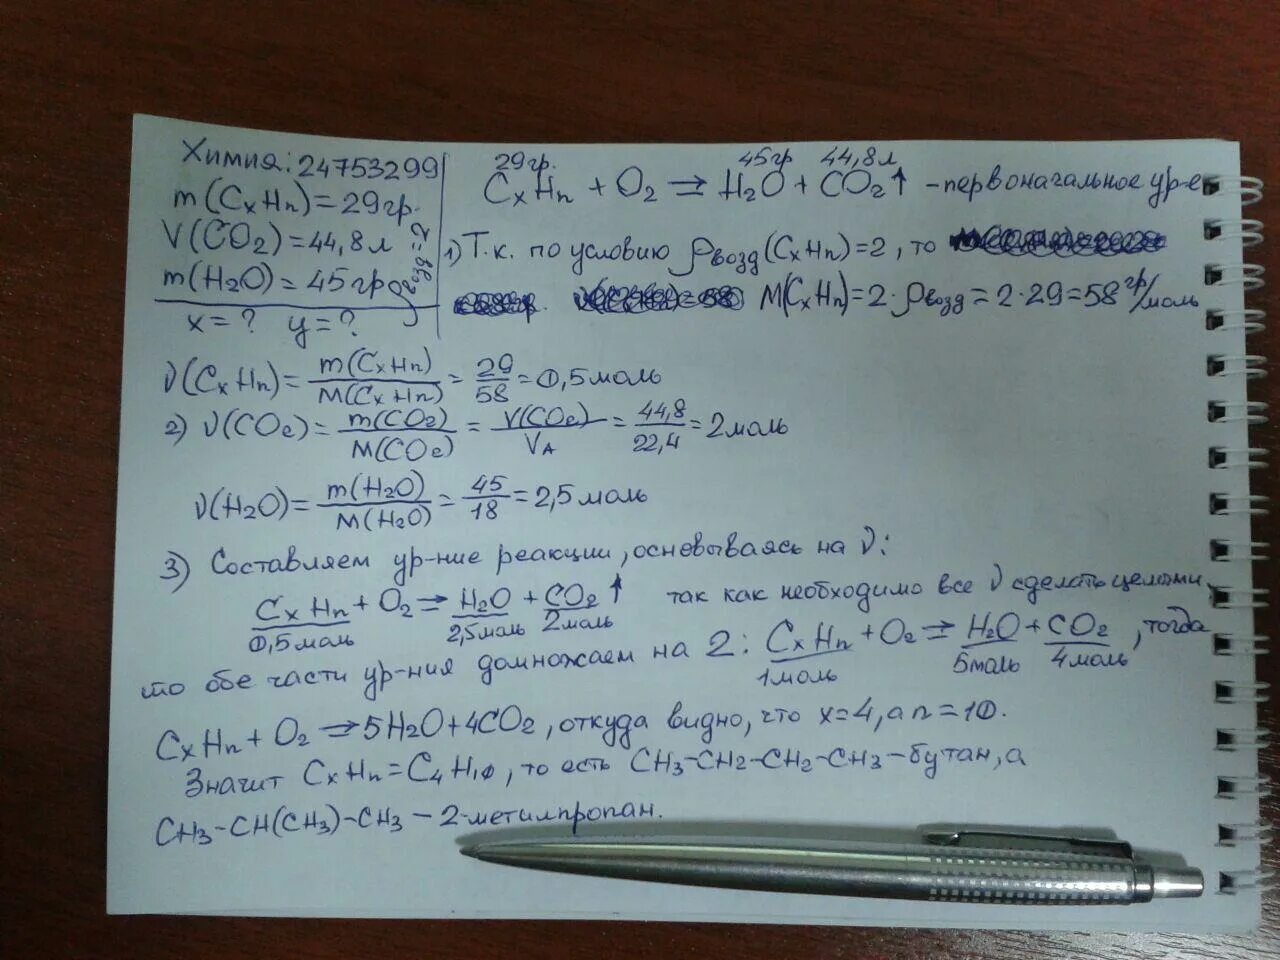 Химия: 24753299
m(CxHn)=29гр.
V(CO2)=44,8л
m(H2O)=45гр ρвозд=2
x=? y=?
29гр. 45гр 44,8л
CxHn + O2 ⇒ H2O + CO2↑ -первоначальное ур-е
1) Т.к. по условию ρвозд(CxHn)=2, то
M(CxHn)=2·ρвозд=2·29=58 гр/моль
ν(CxHn)= m(CxHn)/M(CxHn) = 29/58 =0,5моль
2) ν(CO2)= m(CO2)/M(CO2) = V(CO2)/VA = 44,8/22,4 =2моль
ν(H2O)= m(H2O)/M(H2O) = 45/18 =2,5моль
3) Составляем ур-ние реакции, основываясь на ν:
CxHn + O2 ⇒ H2O + CO2↑ так как необходимо все ν сделать целыми,
0,5моль 2,5моль 2моль
то обе части ур-ния домножаем на 2: CxHn + O2 ⇒ H2O + CO2, тогда
1моль 5моль 4моль
CxHn + O2 ⇒ 5H2O + 4CO2, откуда видно, что x=4, а n=10.
Значит CxHn=C4H10, то есть CH3-CH2-CH2-CH3-бутан, а
CH3-CH(CH3)-CH3 – 2-метилпропан.